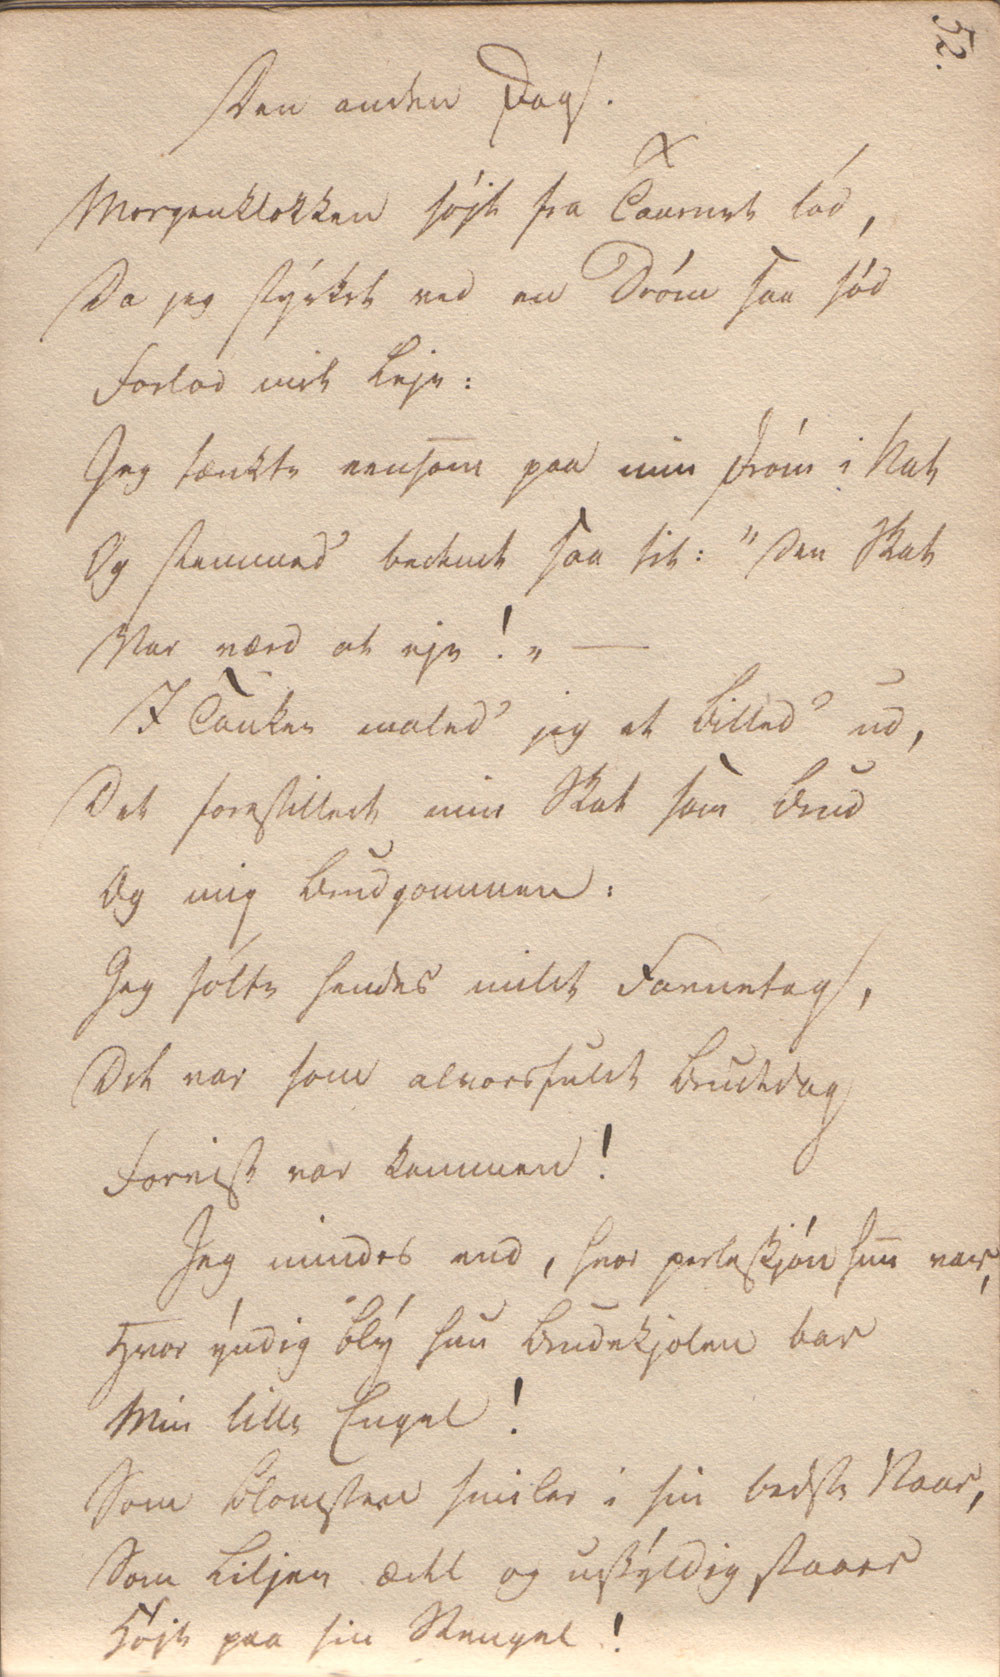 52.
Den anden Dag.
Morgenklokken højt fra Taarnet lød,
Da jeg styrket ved en Drøm saa sød
Forlod mit Leje:
Jeg tænkte eensom paa min Drøm i Nat
Og stemmed' bedent saa tit: "Den Skat
Var værd at eje!" —
I Tanken maled' jeg et Billed' ud,
Det forestillede min Skat som Brud
Og mig Brudgommen:
Jeg følte hendes milde Favnetag,
Det var som alvorsfuldt Brudedag
Forvist var kommen!
Jeg mindes end, hvor perleskjøn hun var,
Hvor yndig bly hun Brudekjolen bar
Min lille Engel!
Som Blomsten smiler i sin bedste Vaar,
Som Liljen ædel og uskyldig staaer
Højt paa sin Stengel!